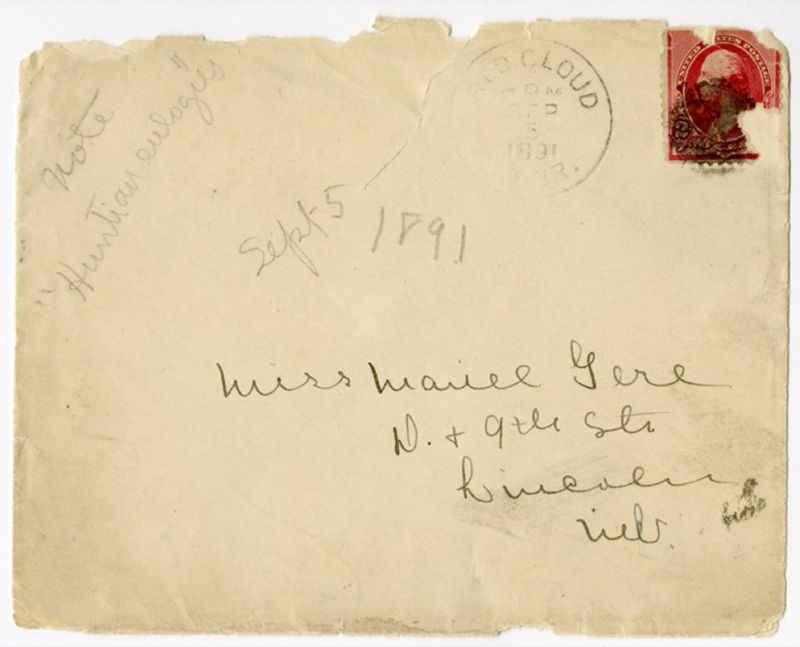 note
"Huntian eulogies"
RED CLOUD
SEP
5
1891
UNITED STATES POSTAGE
Sept 5 1891
Miss Mariel Gere
D. + 9th Sts
Lincoln
Neb.